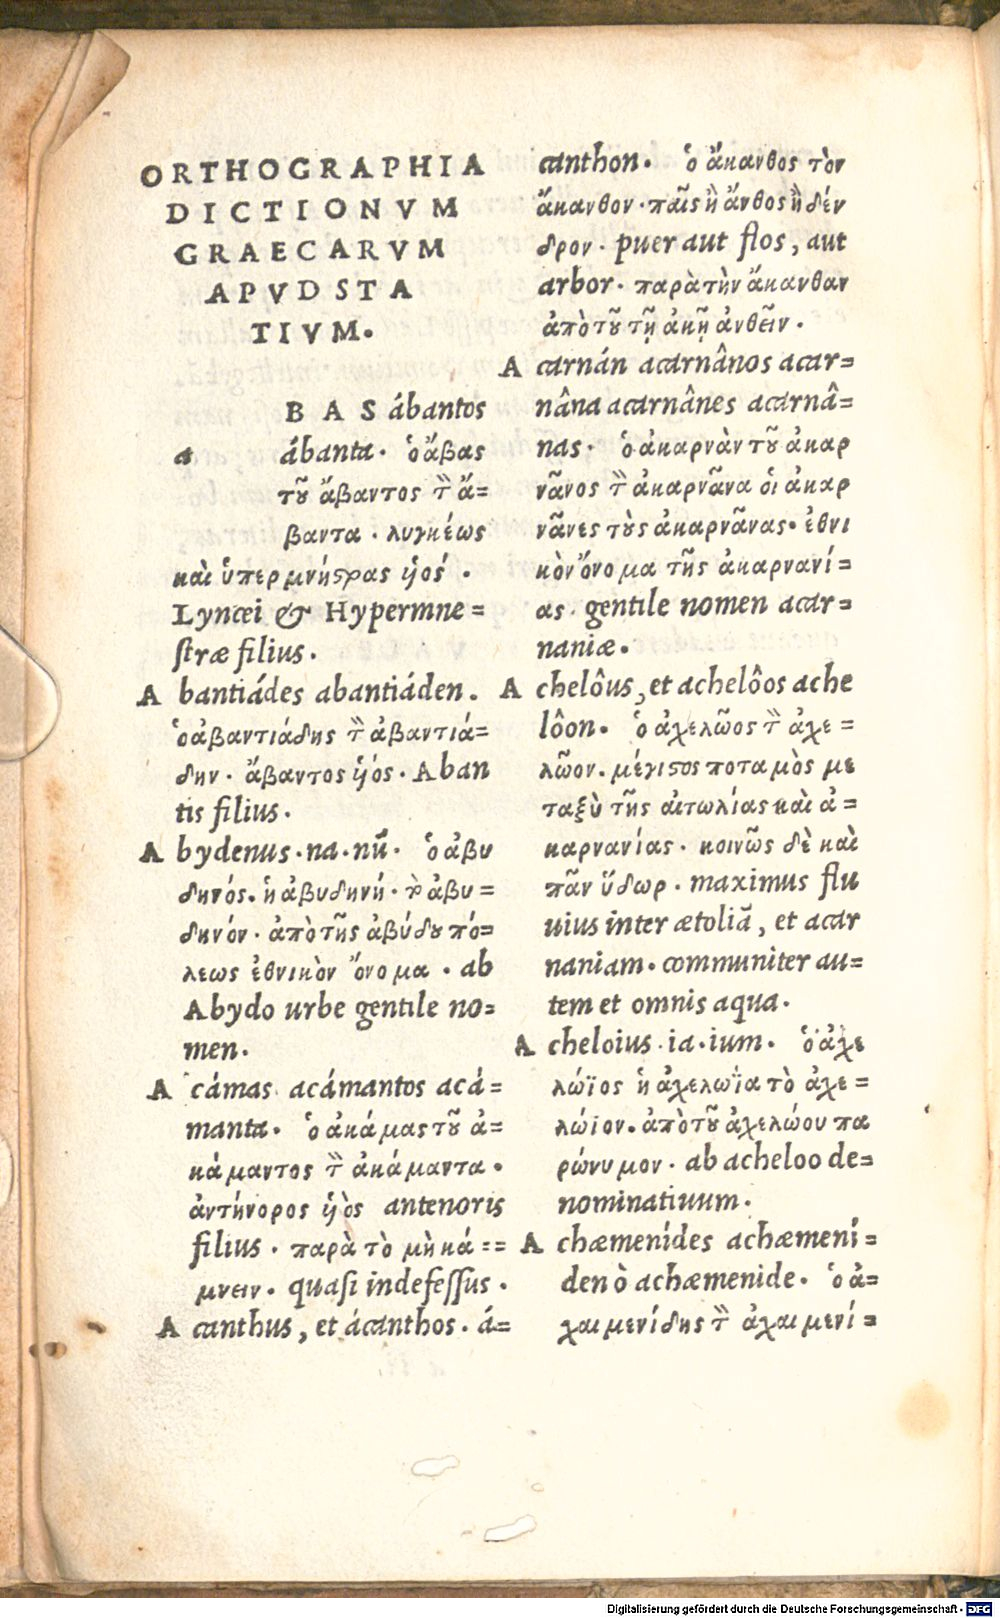 ORTHOGRAPHIA
DICTIONVM
GRAECARVM
APVD STA
TIVM.
a
BAS ábantos
ábanta. ὁ ἄβας
τοῦ ἄβαντος τὸν ἄ=
βαντα. λυγκέως
καὶ ὑπερμνήστρας ὑιός.
Lyncei & Hypermne=
stræ filius.
Abantiádes abantiáden.
ὁ ἀβαντιάδης τὸν ἀβαντιά=
δην. ἄβαντος ὑιός. Aban
tis filius.
Abydenus.na.nũ. ὁ ἀβυ
δηνός. ἡ ἀβυδηνή. τὸ ἀβυ=
δηνόν. ἀπὸ τῆς ἀβύδου πό=
λεως ἐθνικὸν ὄνομα. ab
Abydo urbe gentile no=
men.
Acámas acámantos acá=
manta. ὁ ἀκάμας τοῦ ἀ=
κάμαντος τὸν ἀκάμαντα.
ἀντήνορος ὑιὸς antenoris
filius. παρὰ τὸ μὴ κά==
μνειν. quasi indefessus.
Acanthus, et ácanthos. á=
canthon. ὁ ἄκανθος τὸν
ἄκανθον. παῖς ἢ ἄνθος ἢ δέν
δρον. puer aut flos, aut
arbor. παρὰ τὴν ἄκανθαν
ἀπὸ τοῦ τῇ ἀκῇ ἀνθεῖν.
Acarnán acarnânos acar=
nâna acarnânes acarnâ=
nas. ὁ ἀκαρνὰν τοῦ ἀκαρ
νᾶνος τὸν ἀκαρνᾶνα ὁι ἀκαρ
νᾶνες τοὺς ἀκαρνᾶνας. ἐθνι
κὸν ὄνομα τῆς ἀκαρνανί=
ας. gentile nomen acar=
naniæ.
Achelôus, et achelôos ache
lôon. ὁ ἀχελῶος τὸν ἀχε=
λῶον. μέγιστος ποταμὸς με
ταξὺ τῆς αἰτωλίας καὶ ἀ=
καρνανίας. κοινῶς δὲ καὶ
πᾶν ὕδωρ. maximus flu
uius inter ætoliã, et acar
naniam. communiter au=
tem et omnis aqua.
Acheloius.ia.ium. ὁ ἀχε
λώϊος ἡ ἀχελωΐα τὸ ἀχε=
λώϊον. ἀπὸ τοῦ ἀχελώου πα
ρώνυμον. ab acheloo de=
nominatiuum.
Achæmenídes achæmení=
den ò achæmenide. ὁ ἀ=
χαιμενίδης τὸν ἀχαιμενί=
Digitalisierung gefördert durch die Deutsche Forschungsgemeinschaft - DFG